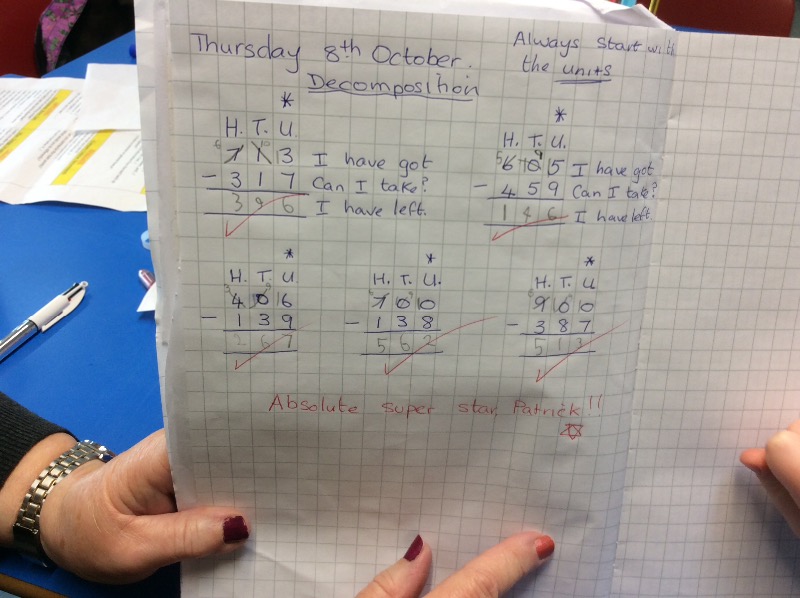 Thursday 8th October.
Always start with
the units
Decomposition
*
H. T. U.
6 7 1 10 13 I have got
- 3 1 7 Can I take?
3 9 6 I have left.
*
H. T. U.
5 6 10 9 15 I have got
- 4 5 9 Can I take?
1 4 6 I have left.
*
H. T. U
3 4 10 9 16
- 1 3 9
2 6 7
*
H. T. U.
7 10 10
- 1 3 8
5 6 2
*
H. T. U
9 10 10
- 3 8 7
5 1 3
Absolute super star, Patrick!!